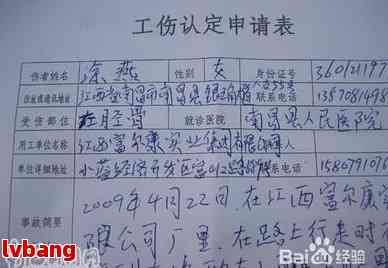 工伤认定申请表
伤者姓名 涂燕 性别 女 身份证号 360121197
住址或通讯地址 江西省南昌市南昌县银 联系电话 1357081498
受伤部位 左胫骨 就诊医院 南昌县人民医院
用工单位名称 江西富尔康实业集团有限公司
单位详细地址 小蓝经济开发区富山 路 联系电话 158079101
2009年4月22日,在江西富尔康实
事故简要
限公司厂里,在路上行走时
lvbang
Bai 经验